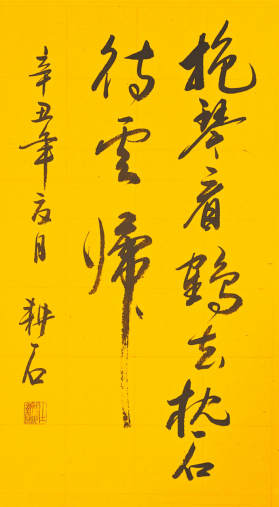 抱琴看鹤去枕石
待云归
辛丑年夏月
耕石